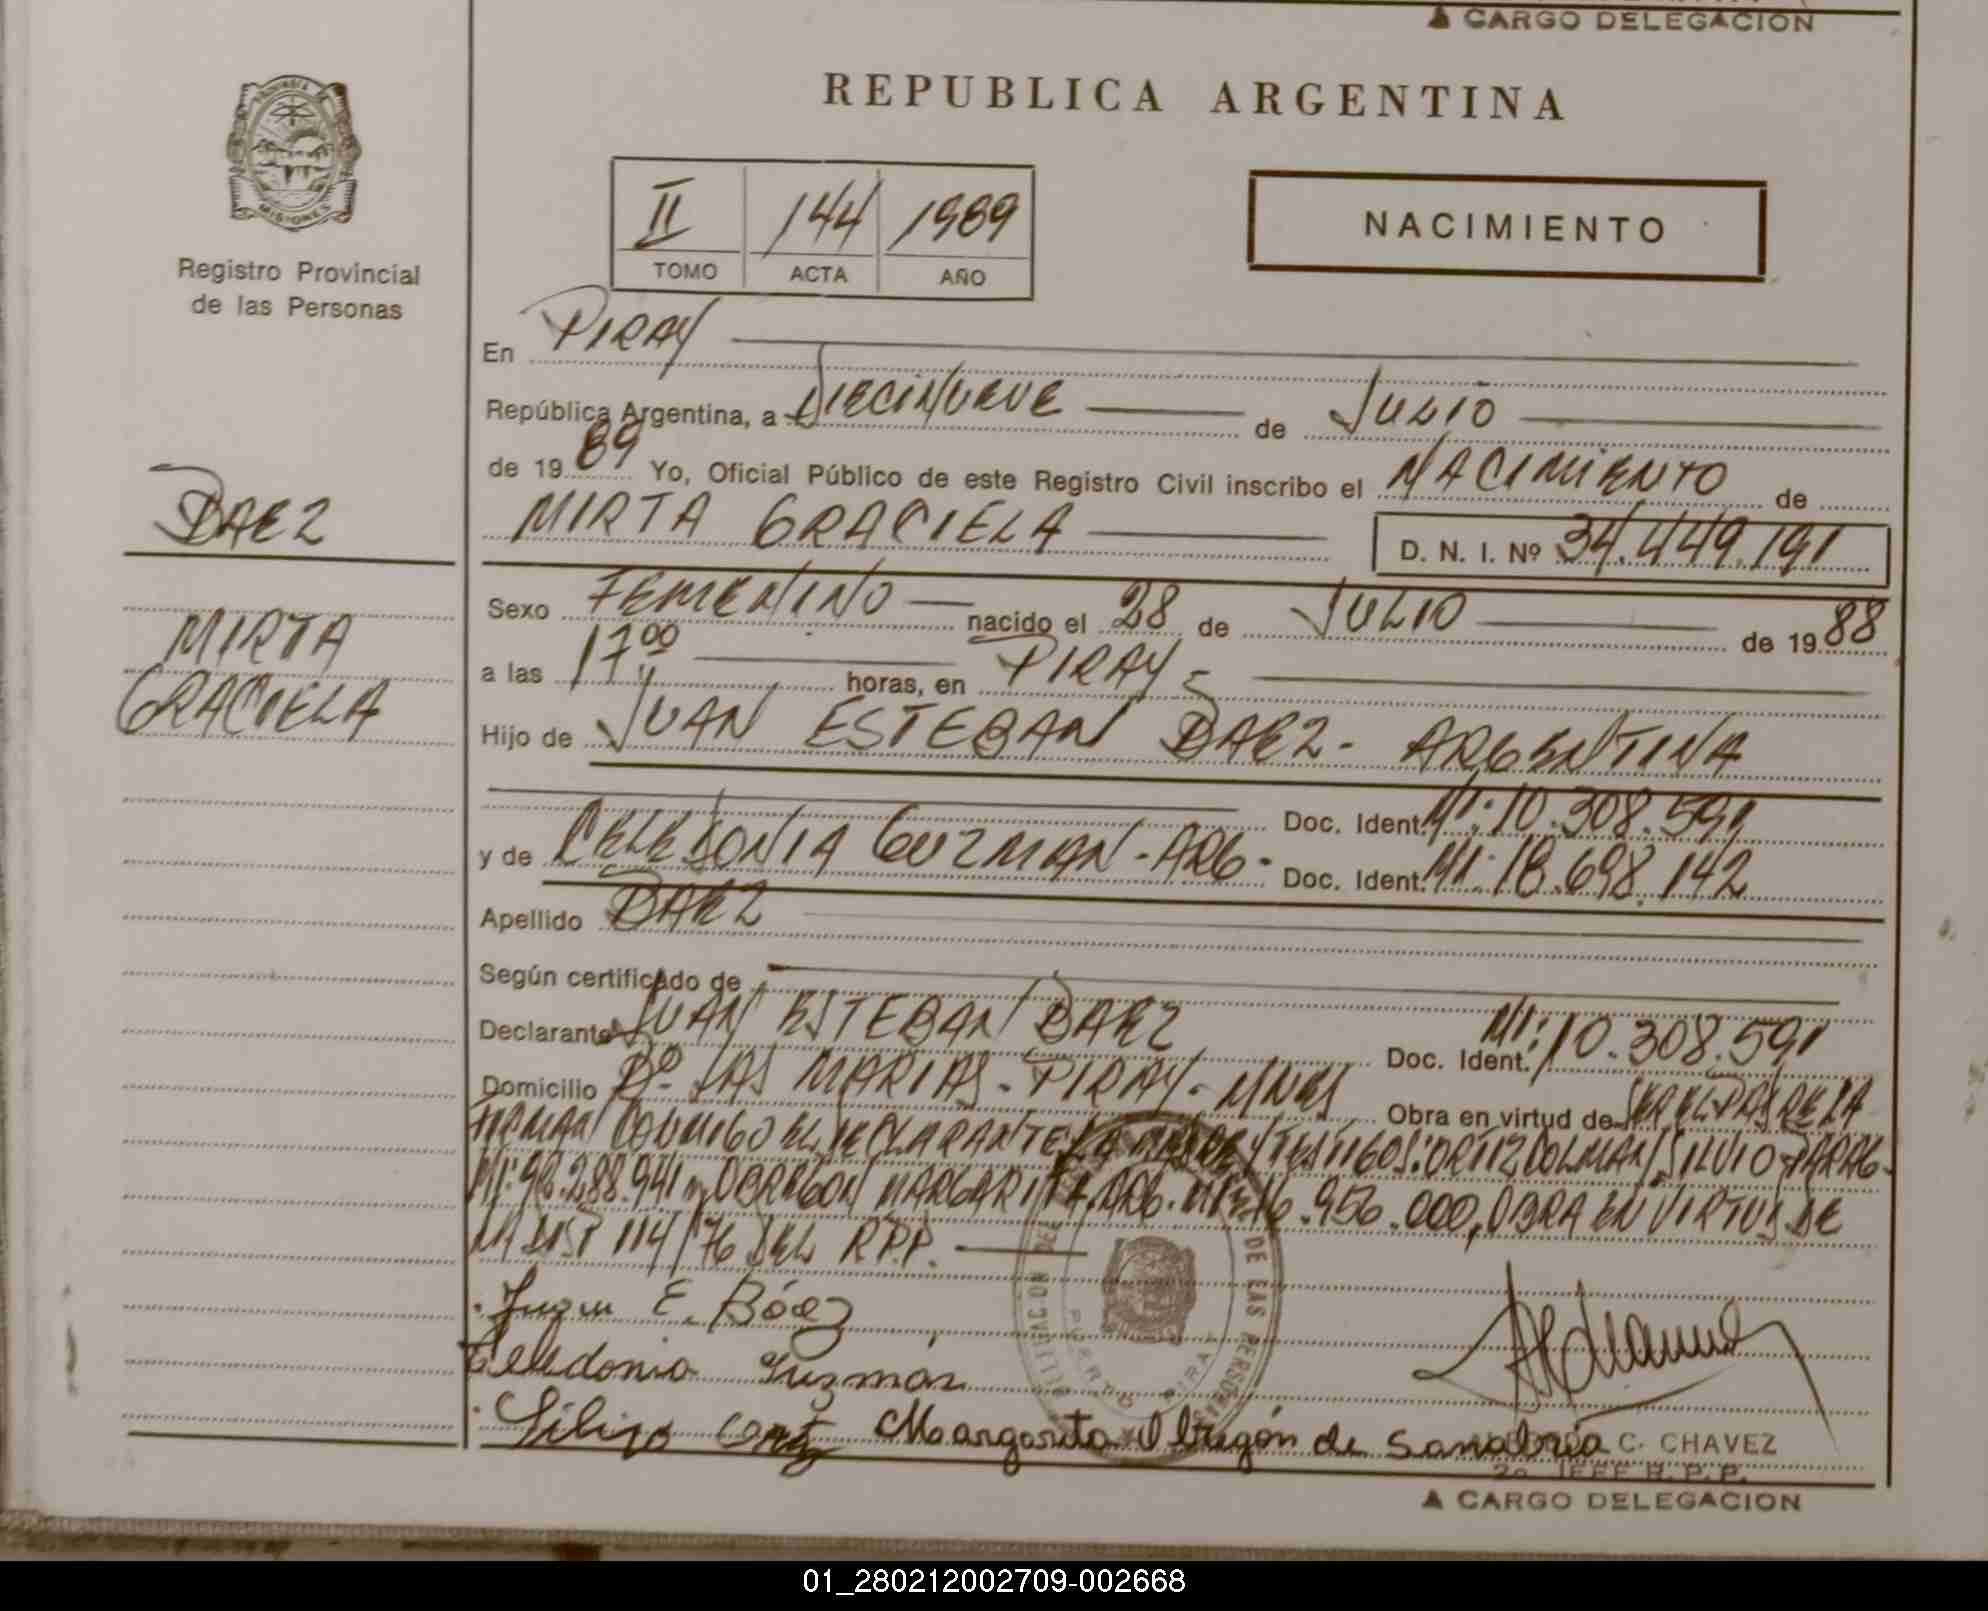 A CARGO DELEGACION
REPUBLICA ARGENTINA
PROVINCIA DE
MISIONES
Registro Provincial
de las Personas
II 144 1989
TOMO ACTA AÑO
NACIMIENTO
En PIRAY
República Argentina, a DIECINUEVE de JULIO
de 19 89 Yo, Oficial Público de este Registro Civil inscribo el NACIMIENTO de
MIRTA GRACIELA D. N. I. Nº 34.449.191
BAEZ
MIRTA
GRACIELA
Sexo FEMENINO nacido el 28 de JULIO de 19 88
a las 17 00 horas, en PIRAY
Hijo de JUAN ESTEBAN BAEZ - ARGENTINA
Doc. Ident. MI: 10.308.591
y de CELEDONIA GUZMAN - ARG - Doc. Ident. MI: 18.698.142
Apellido BAEZ
Según certificado de
Declarante JUAN ESTEBAN BAEZ Doc. Ident. MI: 10.308.591
Domicilio Bº LAS MARIAS - PIRAY - MNES Obra en virtud de SER EL PADRE LA
FIRMAN CONMIGO EL DECLARANTE LA MADRE Y TESTIGOS: ORTIZ COLMAN SILVIO PARAG-
MI: 92.288.941 OBREGON MARGARITA, ARG. 6.956.000, OBRA EN VIRTUD DE
LA DISP 114/76 DEL R.P.P.
Juan E. Báez
Celedonia Guzmán
Silvio Ortiz Margarita Obregón de Sanabria
DELEGACION DEL DE LAS PERSONAS
PUERTO PIRAY
C. CHAVEZ
2o JEFE R. P. P.
A CARGO DELEGACION
01_280212002709-002668